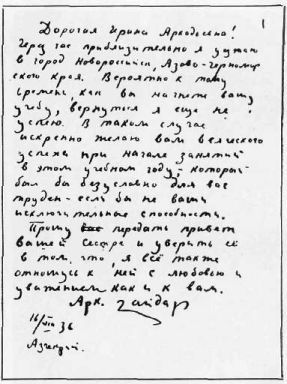 1
Дорогая Ирина Аркадьевна!
Через час приблизительно я уезжаю
в город Новороссийск, Азово-Черномор
ского края. Вероятно к тому
времени, как вы начнете вашу
учебу, вернуться я еще не
успею. В таком случае
искренно желаю вам всяческого
успеха при начале занятий
в этом учебном году – который
был бы безусловно для вас
труден – если бы не ваши
исключительные способности.
Прошу передать привет
вашей сестре и уверить её
в том, что я всё также
отношусь к ней с любовью и
уважением как и к вам.
Арк. Гайдар
16/VIII 36